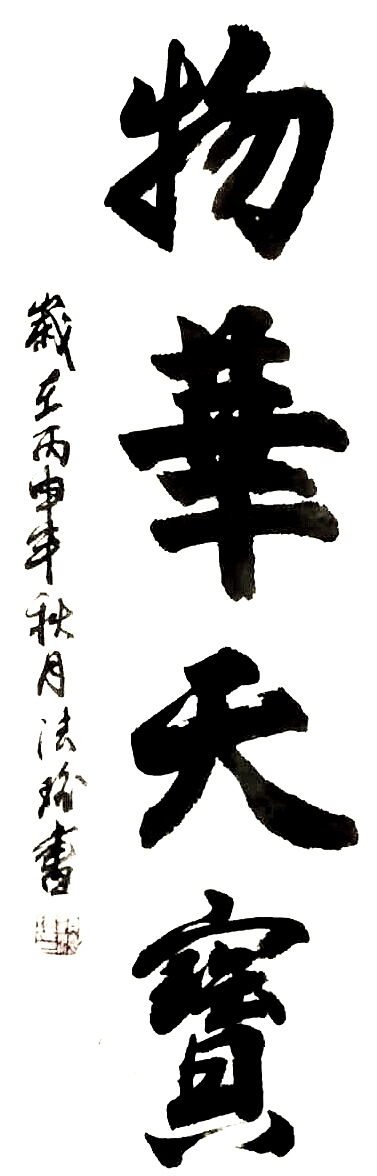 物華天寶
歲在丙申年秋月法瑜書